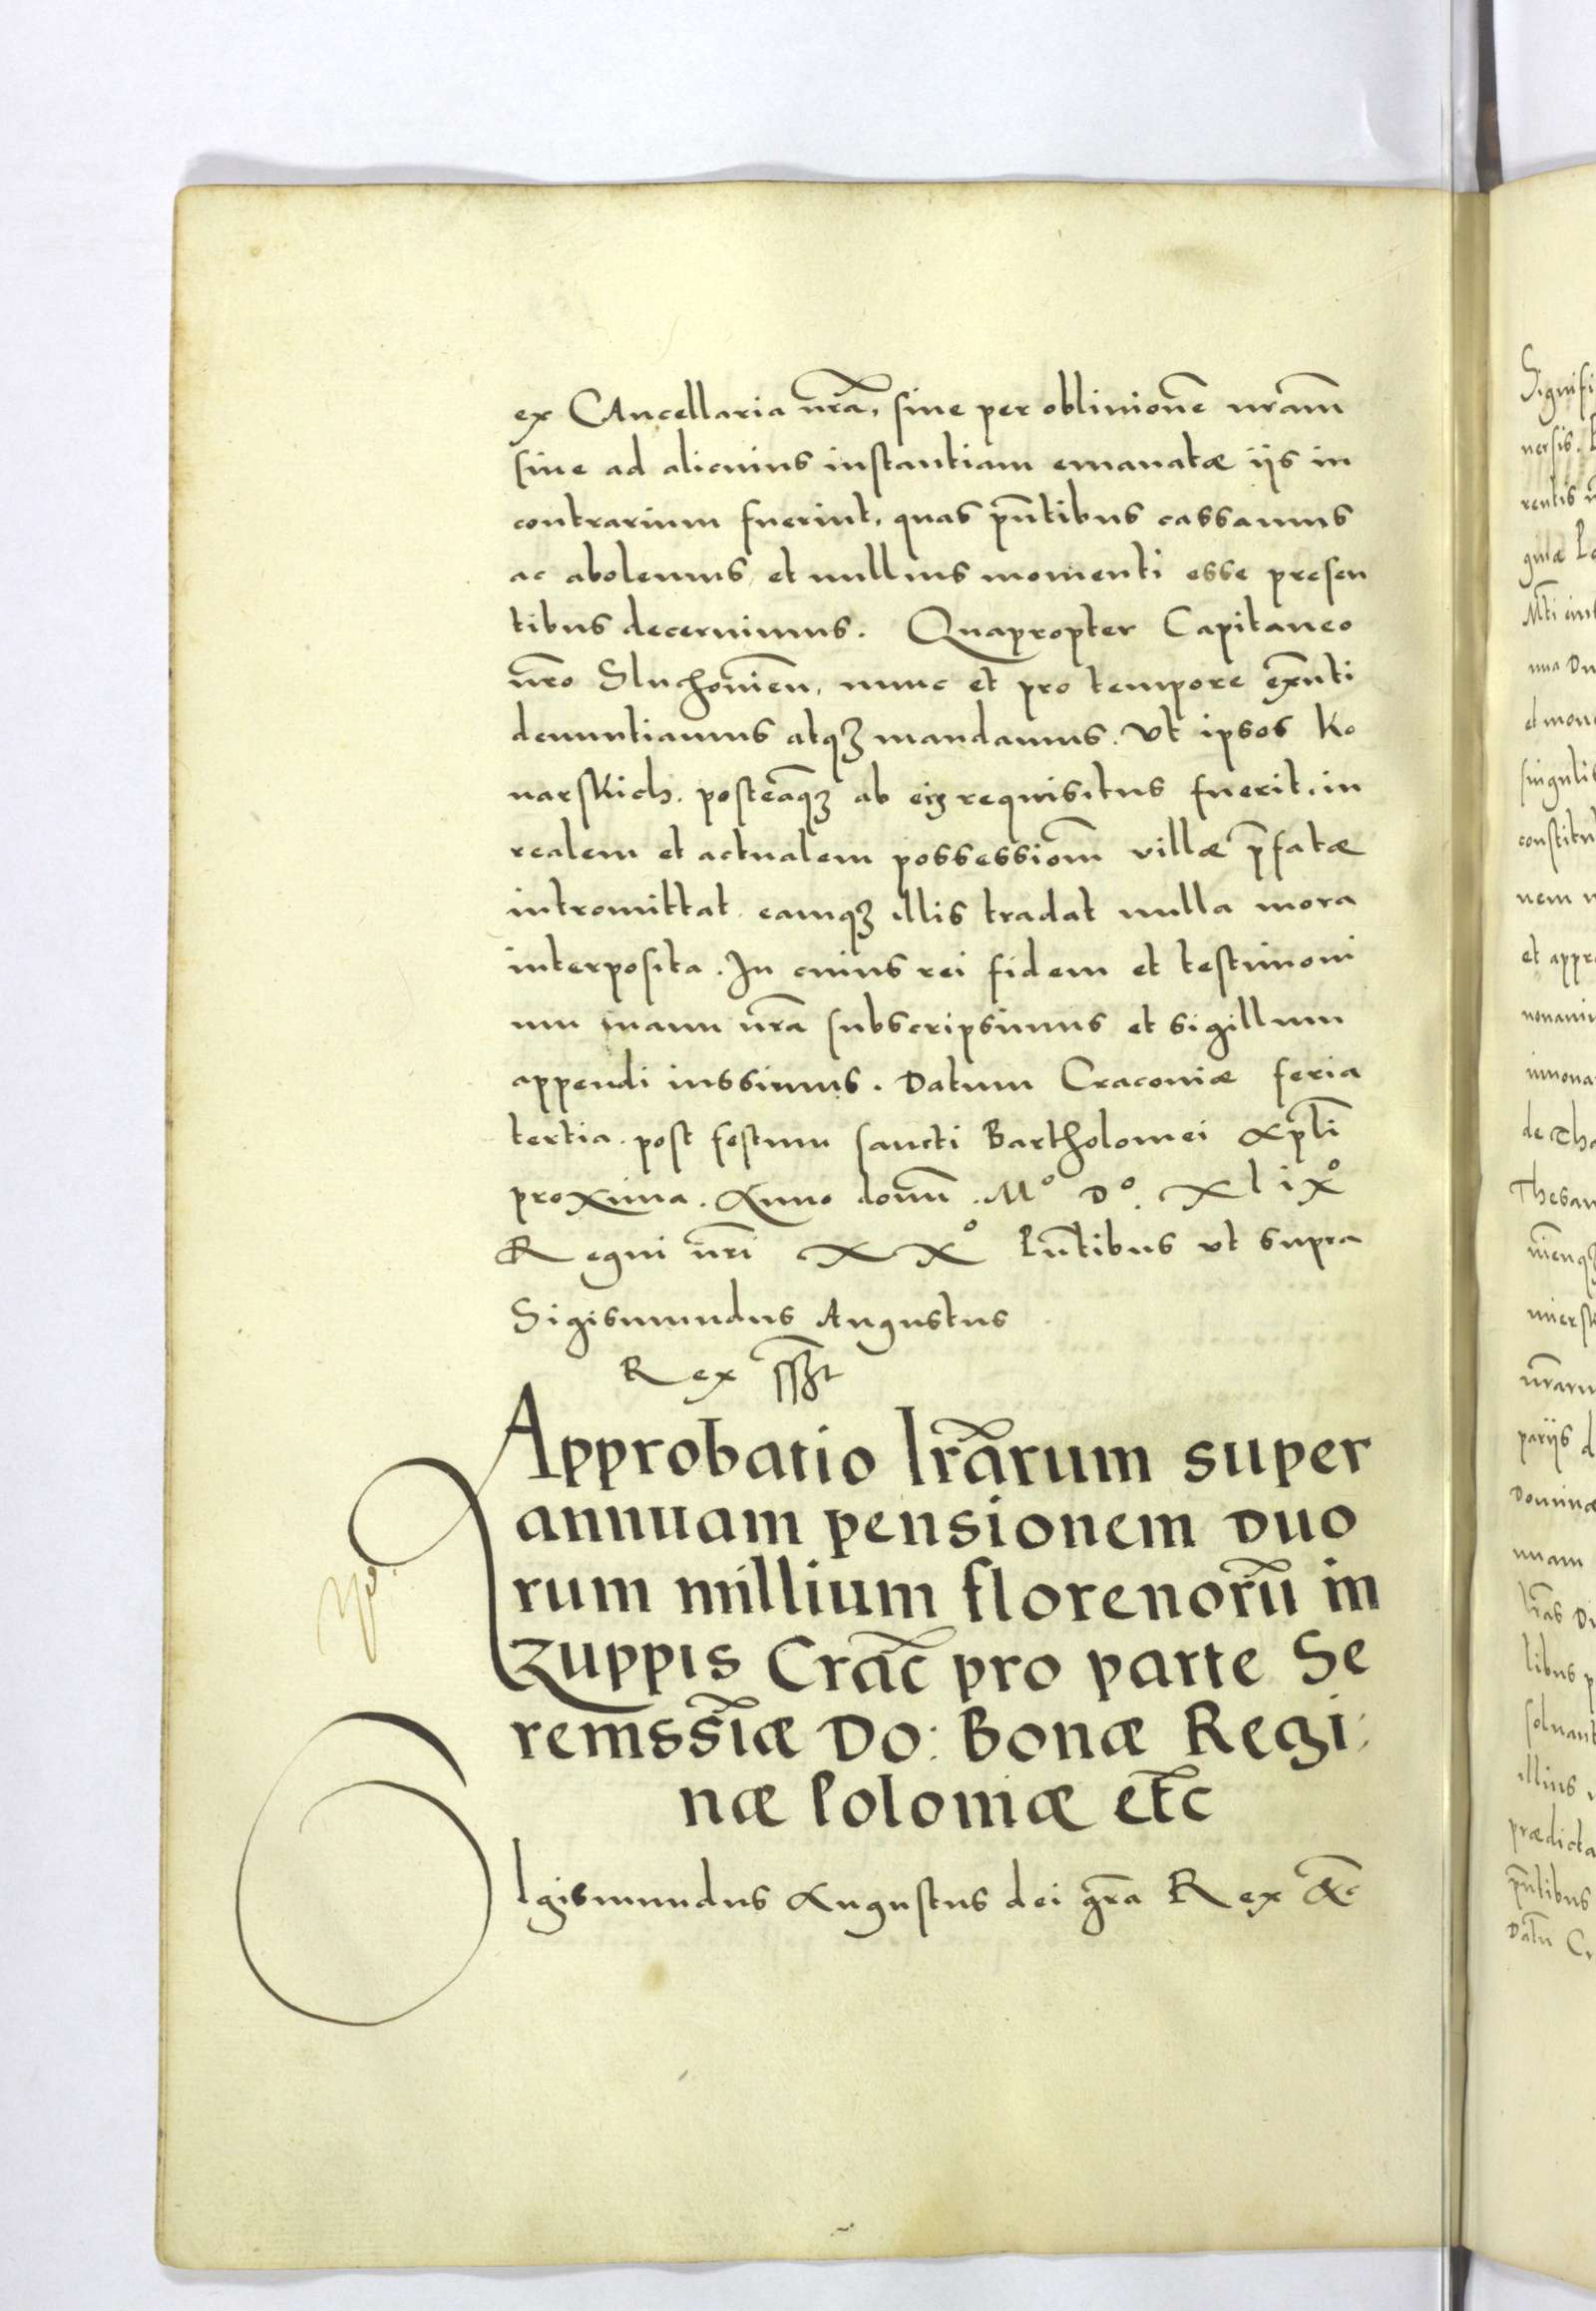 ex CAncellaria nr̃a, siue per obliuionẽ nr̃am
siue ad alicuius instantiam emanatæ iis in
contrarium fuerint, quas pñtibus cassamus
ac abolemus, et nullius momenti esse presen
tibus decernimus. Quapropter Capitaneo
nr̃o Sluchouieñ, nunc et pro tempore exñti
denuntiamus atqȝ mandamus. Vt ipsos Ko
narskich. posteaq̃ȝ ab eis requisitus fuerit, in
realem et actualem possessioñm villæ p̃fatæ
intromittat. eamqȝ illis tradat nulla mora
interposita. In cuius rei fidem et testimoni
um manu nr̃a subscripsimus et sigillum
appendi iussimus. Datum Cracouiæ feria
tertia. post festum sancti Bartholomei Apl̃i
proxima. Anno domĩ. Mº Dº. Xlixº
Regni nr̃i XXº Pñtibus vt supra
Sigismundus Augustus
Rex sszt
Approbatio lr̃arum super
annuam pensionem duo
rum millium florenorũ in
zuppis Crac̃ pro parte Se
renissĩæ Do: Bonæ Regi,
næ Poloniæ etc̃
SIgismundus Augustus dei gr̃a Rex &c̃
Signifi
uersis.
rentis
guæ
Mti
nua Du
et mon
singulis
constitu
nem
et appr
nouami
innoua
de Tho
Thesau
niẽnqȝ
miersk
nr̃aru
pariis d
Dominæ
nuam
lr̃as Du
libus p
soluant
illius
prædicta
pñtibus
Datũ Cr